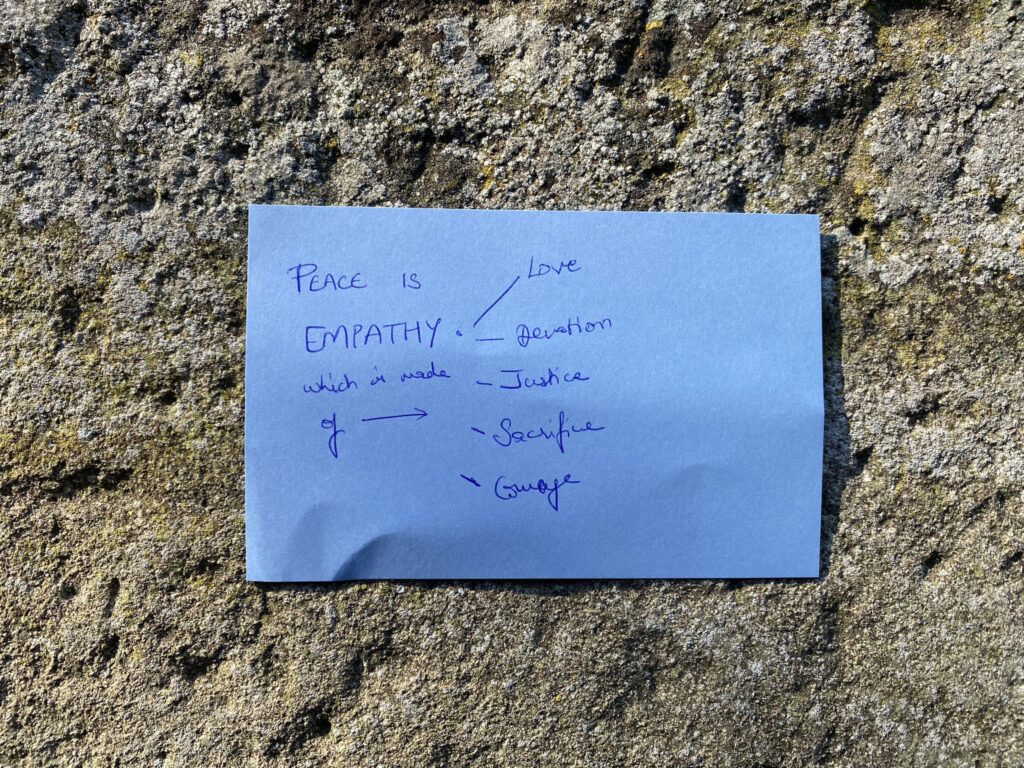 PEACE IS
EMPATHY.
which is made
of →
Love
– Devotion
– Justice
– Sacrifice
– Courage